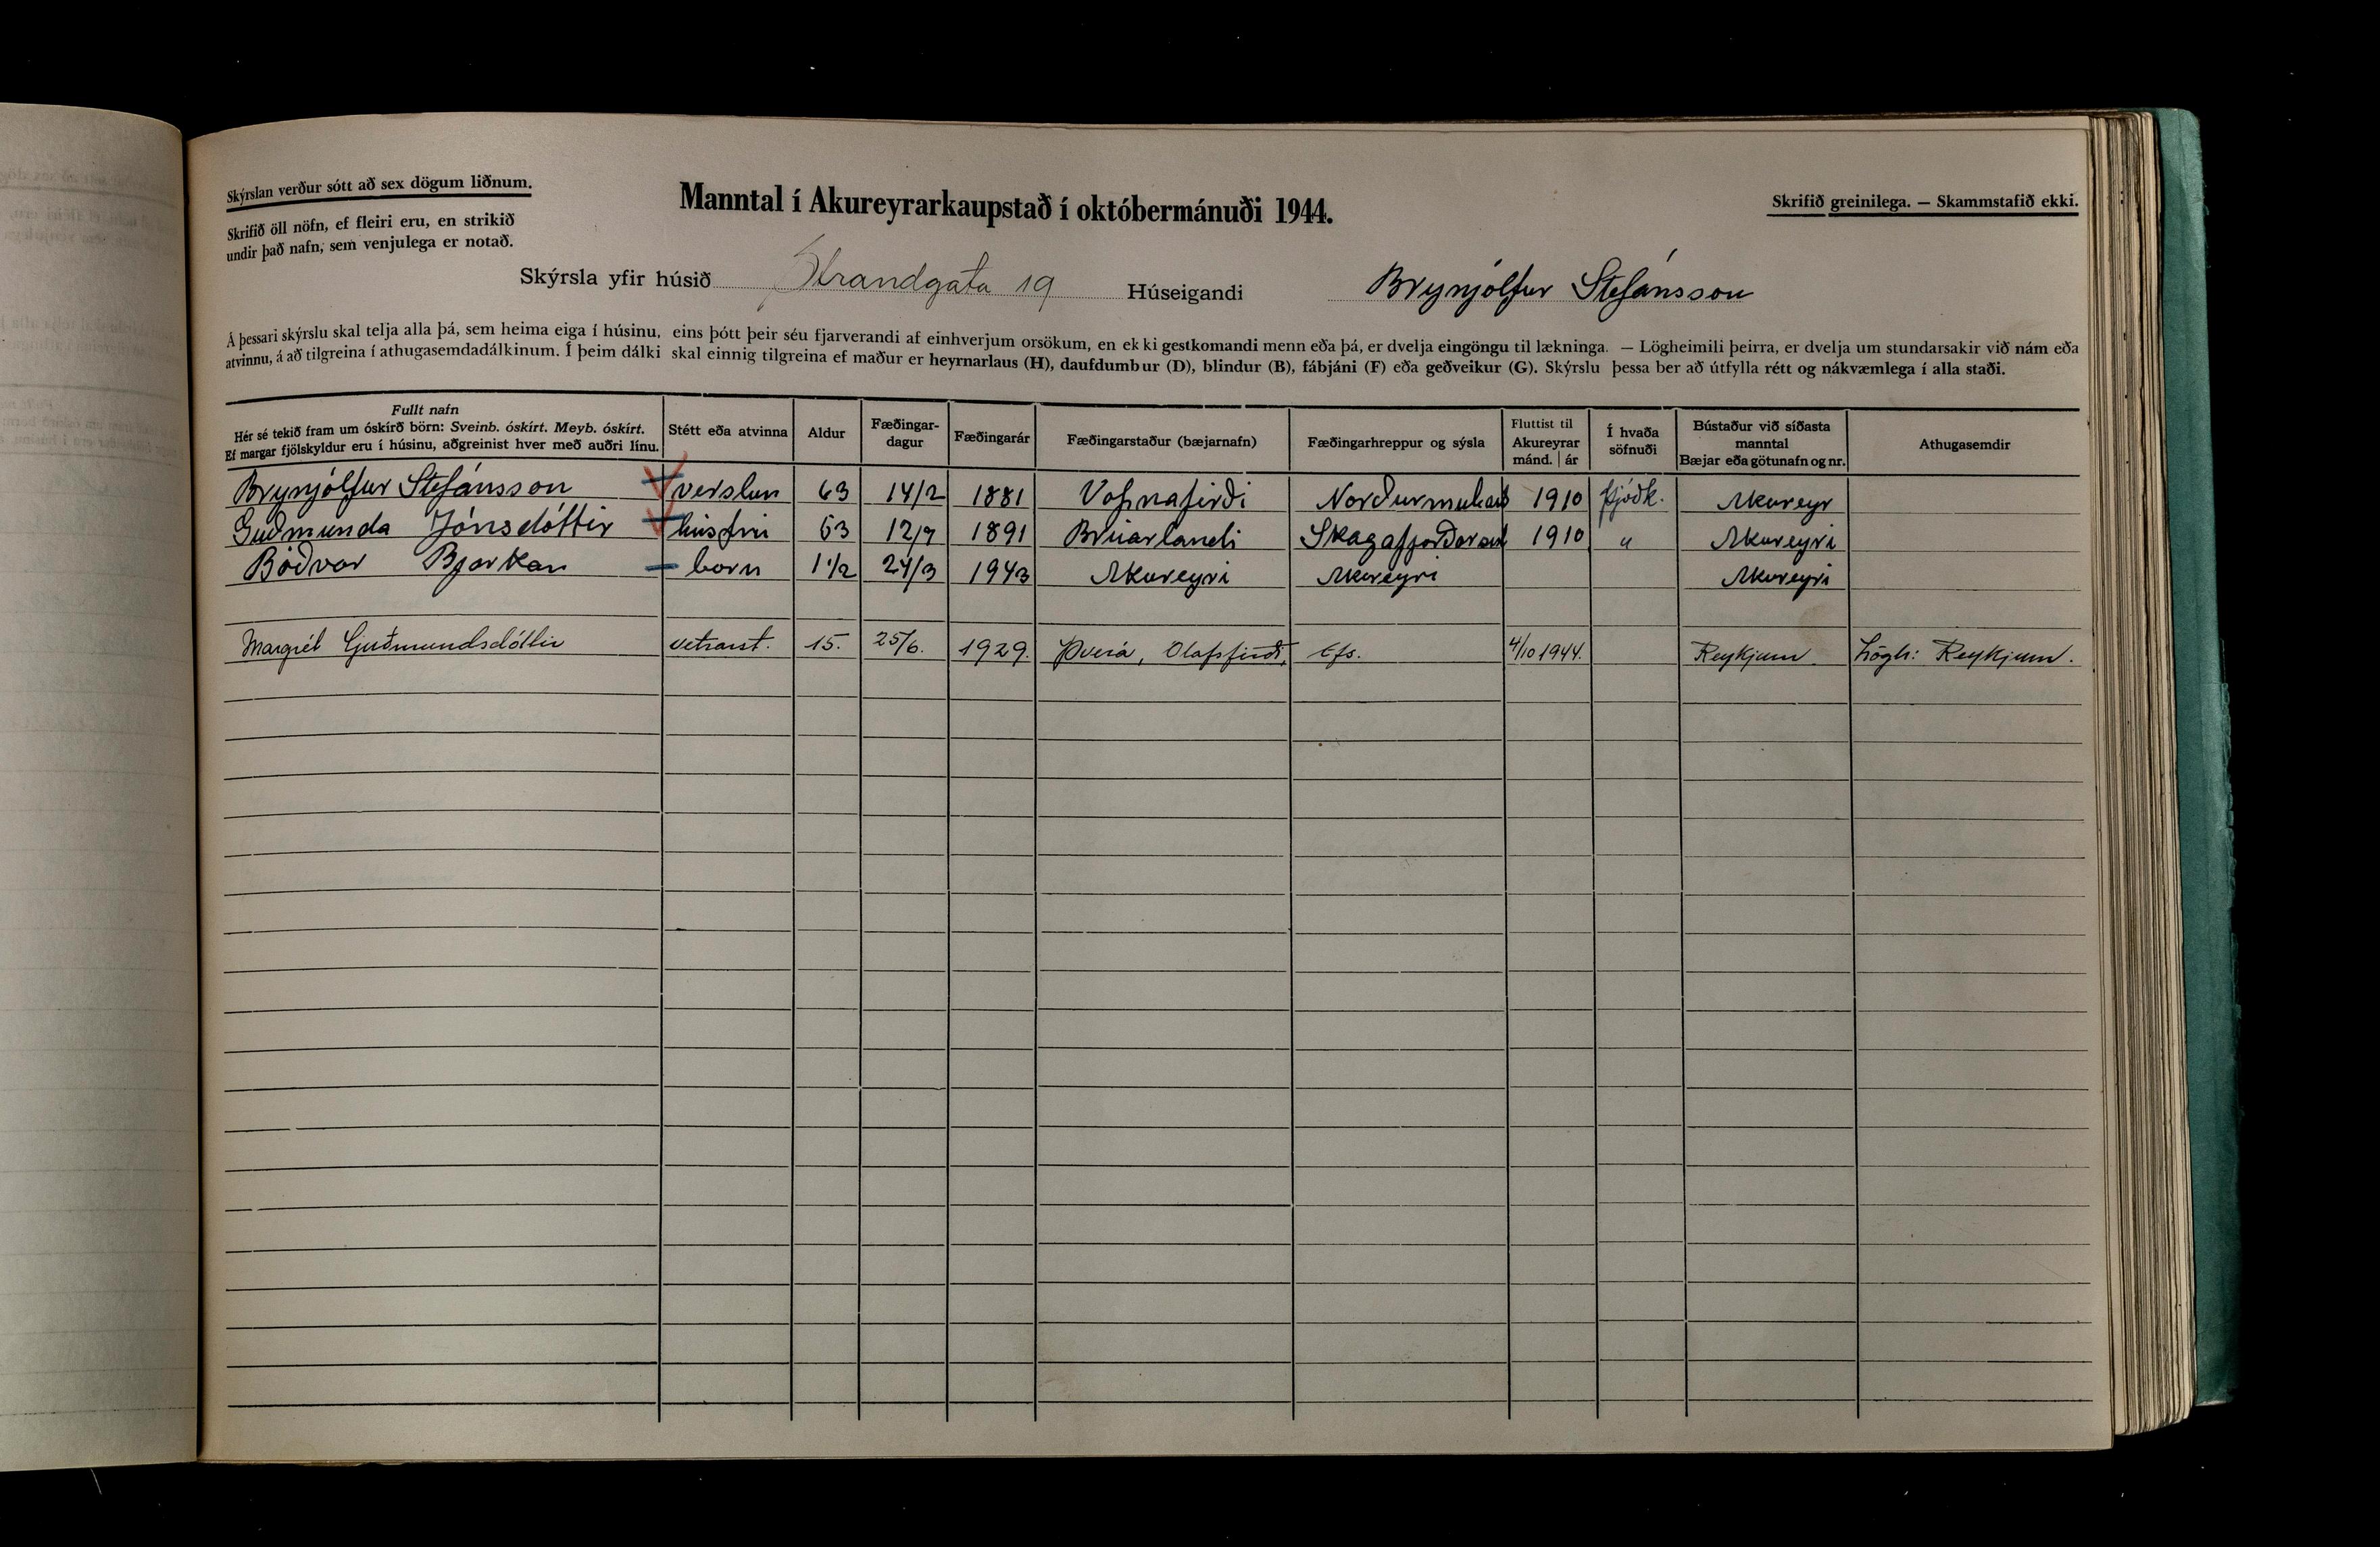 Skýrslan verður sótt að sex dögum liðnum.
Skrifið öll nöfn, ef fleiri eru, en strikið
undir það nafn, sem venjulega er notað.
Manntal í Akureyrarkaupstað í októbermánuði 1944.
Skrifið greinilega. — Skammstafið ekki.
Skýrsla yfir húsið Strandgata 19 Húseigandi Brynjólfur Stefánsson
Á þessari skýrslu skal telja alla þá, sem heima eiga í húsinu, eins þótt þeir séu fjarverandi af einhverjum orsökum, en ekki gestkomandi menn eða þá, er dvelja eingöngu til lækninga. — Lögheimili þeirra, er dvelja um stundarsakir við nám eða
atvinnu, á að tilgreina í athugasemdadálkinum. Í þeim dálki skal einnig tilgreina ef maður er heyrnarlaus (H), daufdumbur (D), blindur (B), fábjáni (F) eða geðveikur (G). Skýrslu þessa ber að útfylla rétt og nákvæmlega í alla staði.
Fullt nafn
Hér sé tekið fram um óskírð börn: Sveinb. óskírt. Meyb. óskírt.
Ef margar fjölskyldur eru í húsinu, aðgreinist hver með auðri línu.
Stétt eða atvinna
Aldur
Fæðingar-
dagur
Fæðingarár
Fæðingarstaður (bæjarnafn)
Fæðingarhreppur og sýsla
Fluttist til
Akureyrar
mánd. | ár
Í hvaða
söfnuði
Bústaður við síðasta
manntal
Bæjar eða götunafn og nr.
Athugasemdir
Brynjólfur Stefánsson verslun 63 14/2 1881 Vopnafirði 1910 þjóðk. Akureyr
Guðmunda Jónsdóttir húsfrú 53 12/7 1891 Brúarlandi 1910 " Akureyri
Böðvar Bjarkan born 1 1/2 24/3 1943 Akureyri Akureyri Akureyri
Margrét Guðmundsdóttir vetrarst. 15. 25/6. 1929. Þverá, Olafsfirði, Efs. 4/10 1944. Reykjum. Lögh: Reykjum.